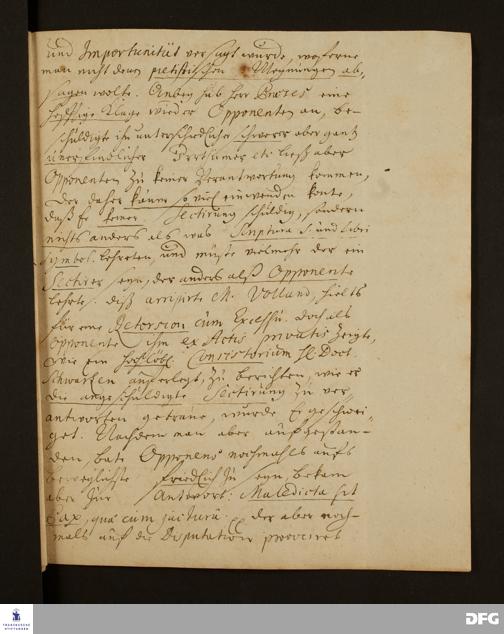 und Importunität versagt wurde, woferne
man nicht denen pietistischen Meynungen ab,
sagen wolte. Anbey hub Herr Præses eine
hefftige Klage wieder Opponenten an, be-
schuldigte ihn unterschiedlicher schwerer aber gantz
unerfindlicher Irrthümer etc. ließ aber
Opponenten zu keiner Verantwortung kommen,
der daher kaum so viel einwenden konte,
daß Er keiner Sectirung schuldig, sondern
nichts anders als was Scriptura S. und libri
symbol. lehreten, und müste vielmehr der ein
Sectirer seyn, der anders alß Opponente
lehrte. Diß arripirte M. Volland, hielts
für eine Retorsion cum Excessu. Doch als
Opponente ihm ex Actis privatis zeigte,
wie ein hochlöbl. Consistorium H. Doct.
Schwartzen aufferlegt, zu berichten, wie er
die angeschuldigte Sectirung zu ver,
antworten getraue, wurde Er geschwei-
get. Nachdem man aber aufgestan-
den, bate Opponens nochmahls aufs
beweglichste friedlich zu seyn, bekam
aber zur Antwort: Maledicta sit
Pax, quæ cum jactura der aber noch-
mals auf die Disputation provociret